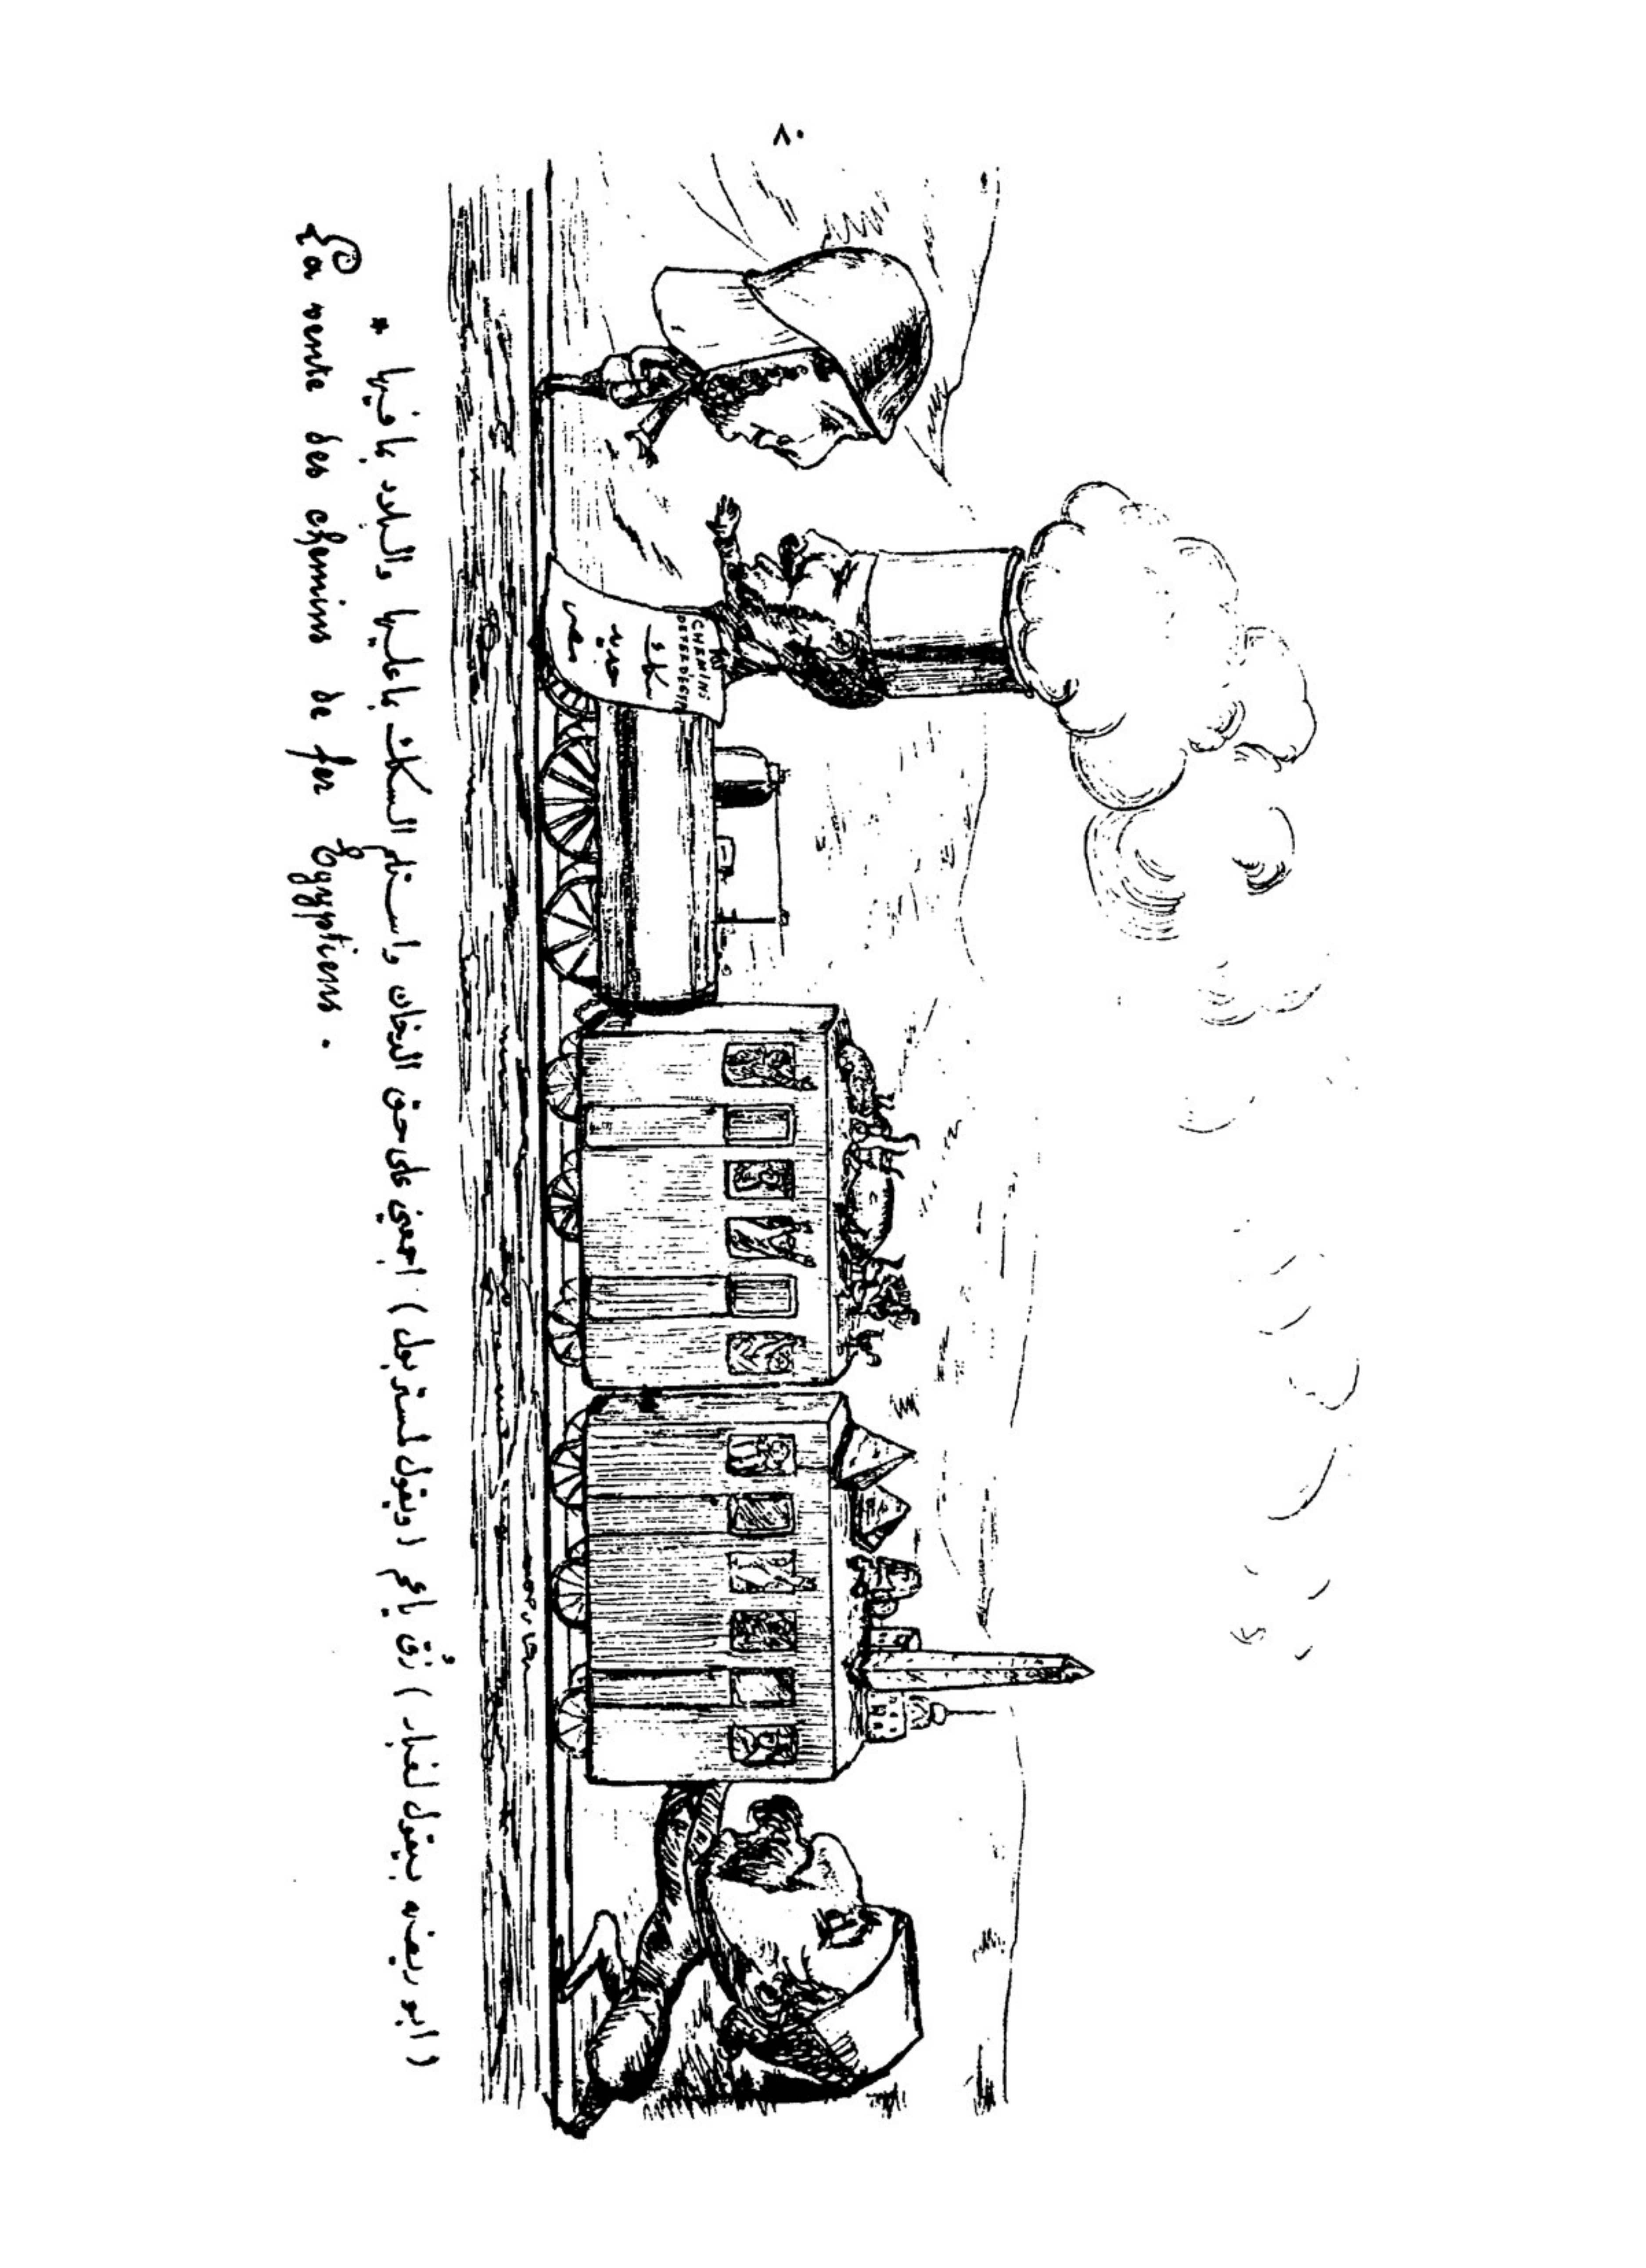 ٨٠
CHEMINS
DE FER D'EGYPTE
سكة
حديد
مصر
(ابو ريضه بيقول لغبار) زق ياعم (ويقول لمستر بول) اجعنى على حق الدخان واستلم السكك بما عليها والبلاد بما فيها *
La vente des chemins de fer Egyptiens .